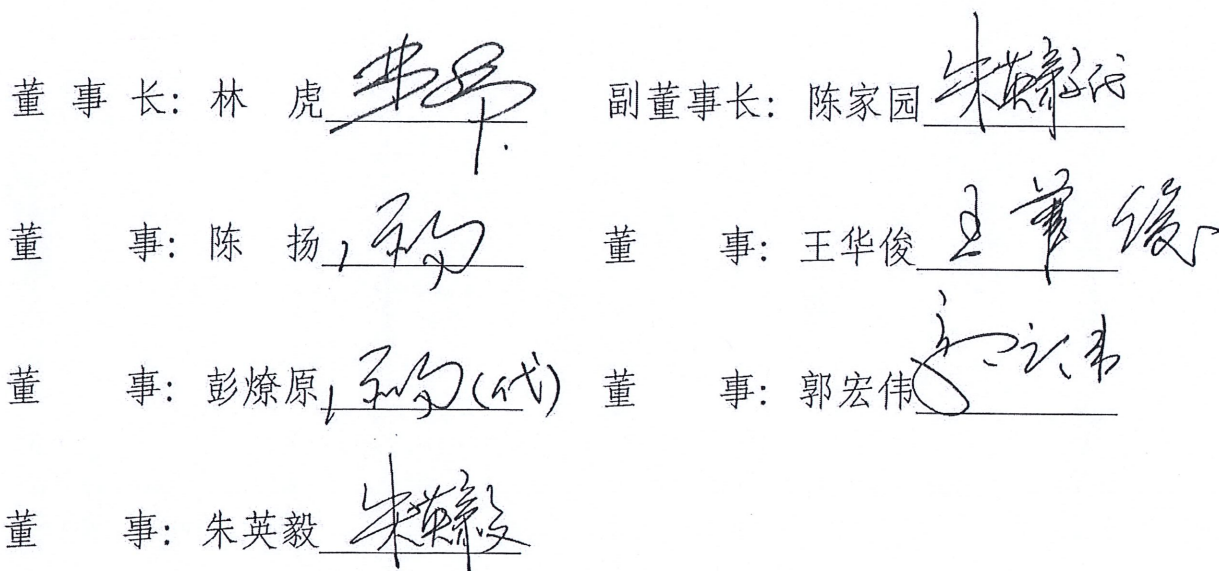 董事长：林虎 林虎 副董事长：陈家园 朱英毅代
董事：陈扬 陈扬 董事：王华俊 王华俊
董事：彭燎原 陈扬(代) 董事：郭宏伟 郭宏伟
董事：朱英毅 朱英毅